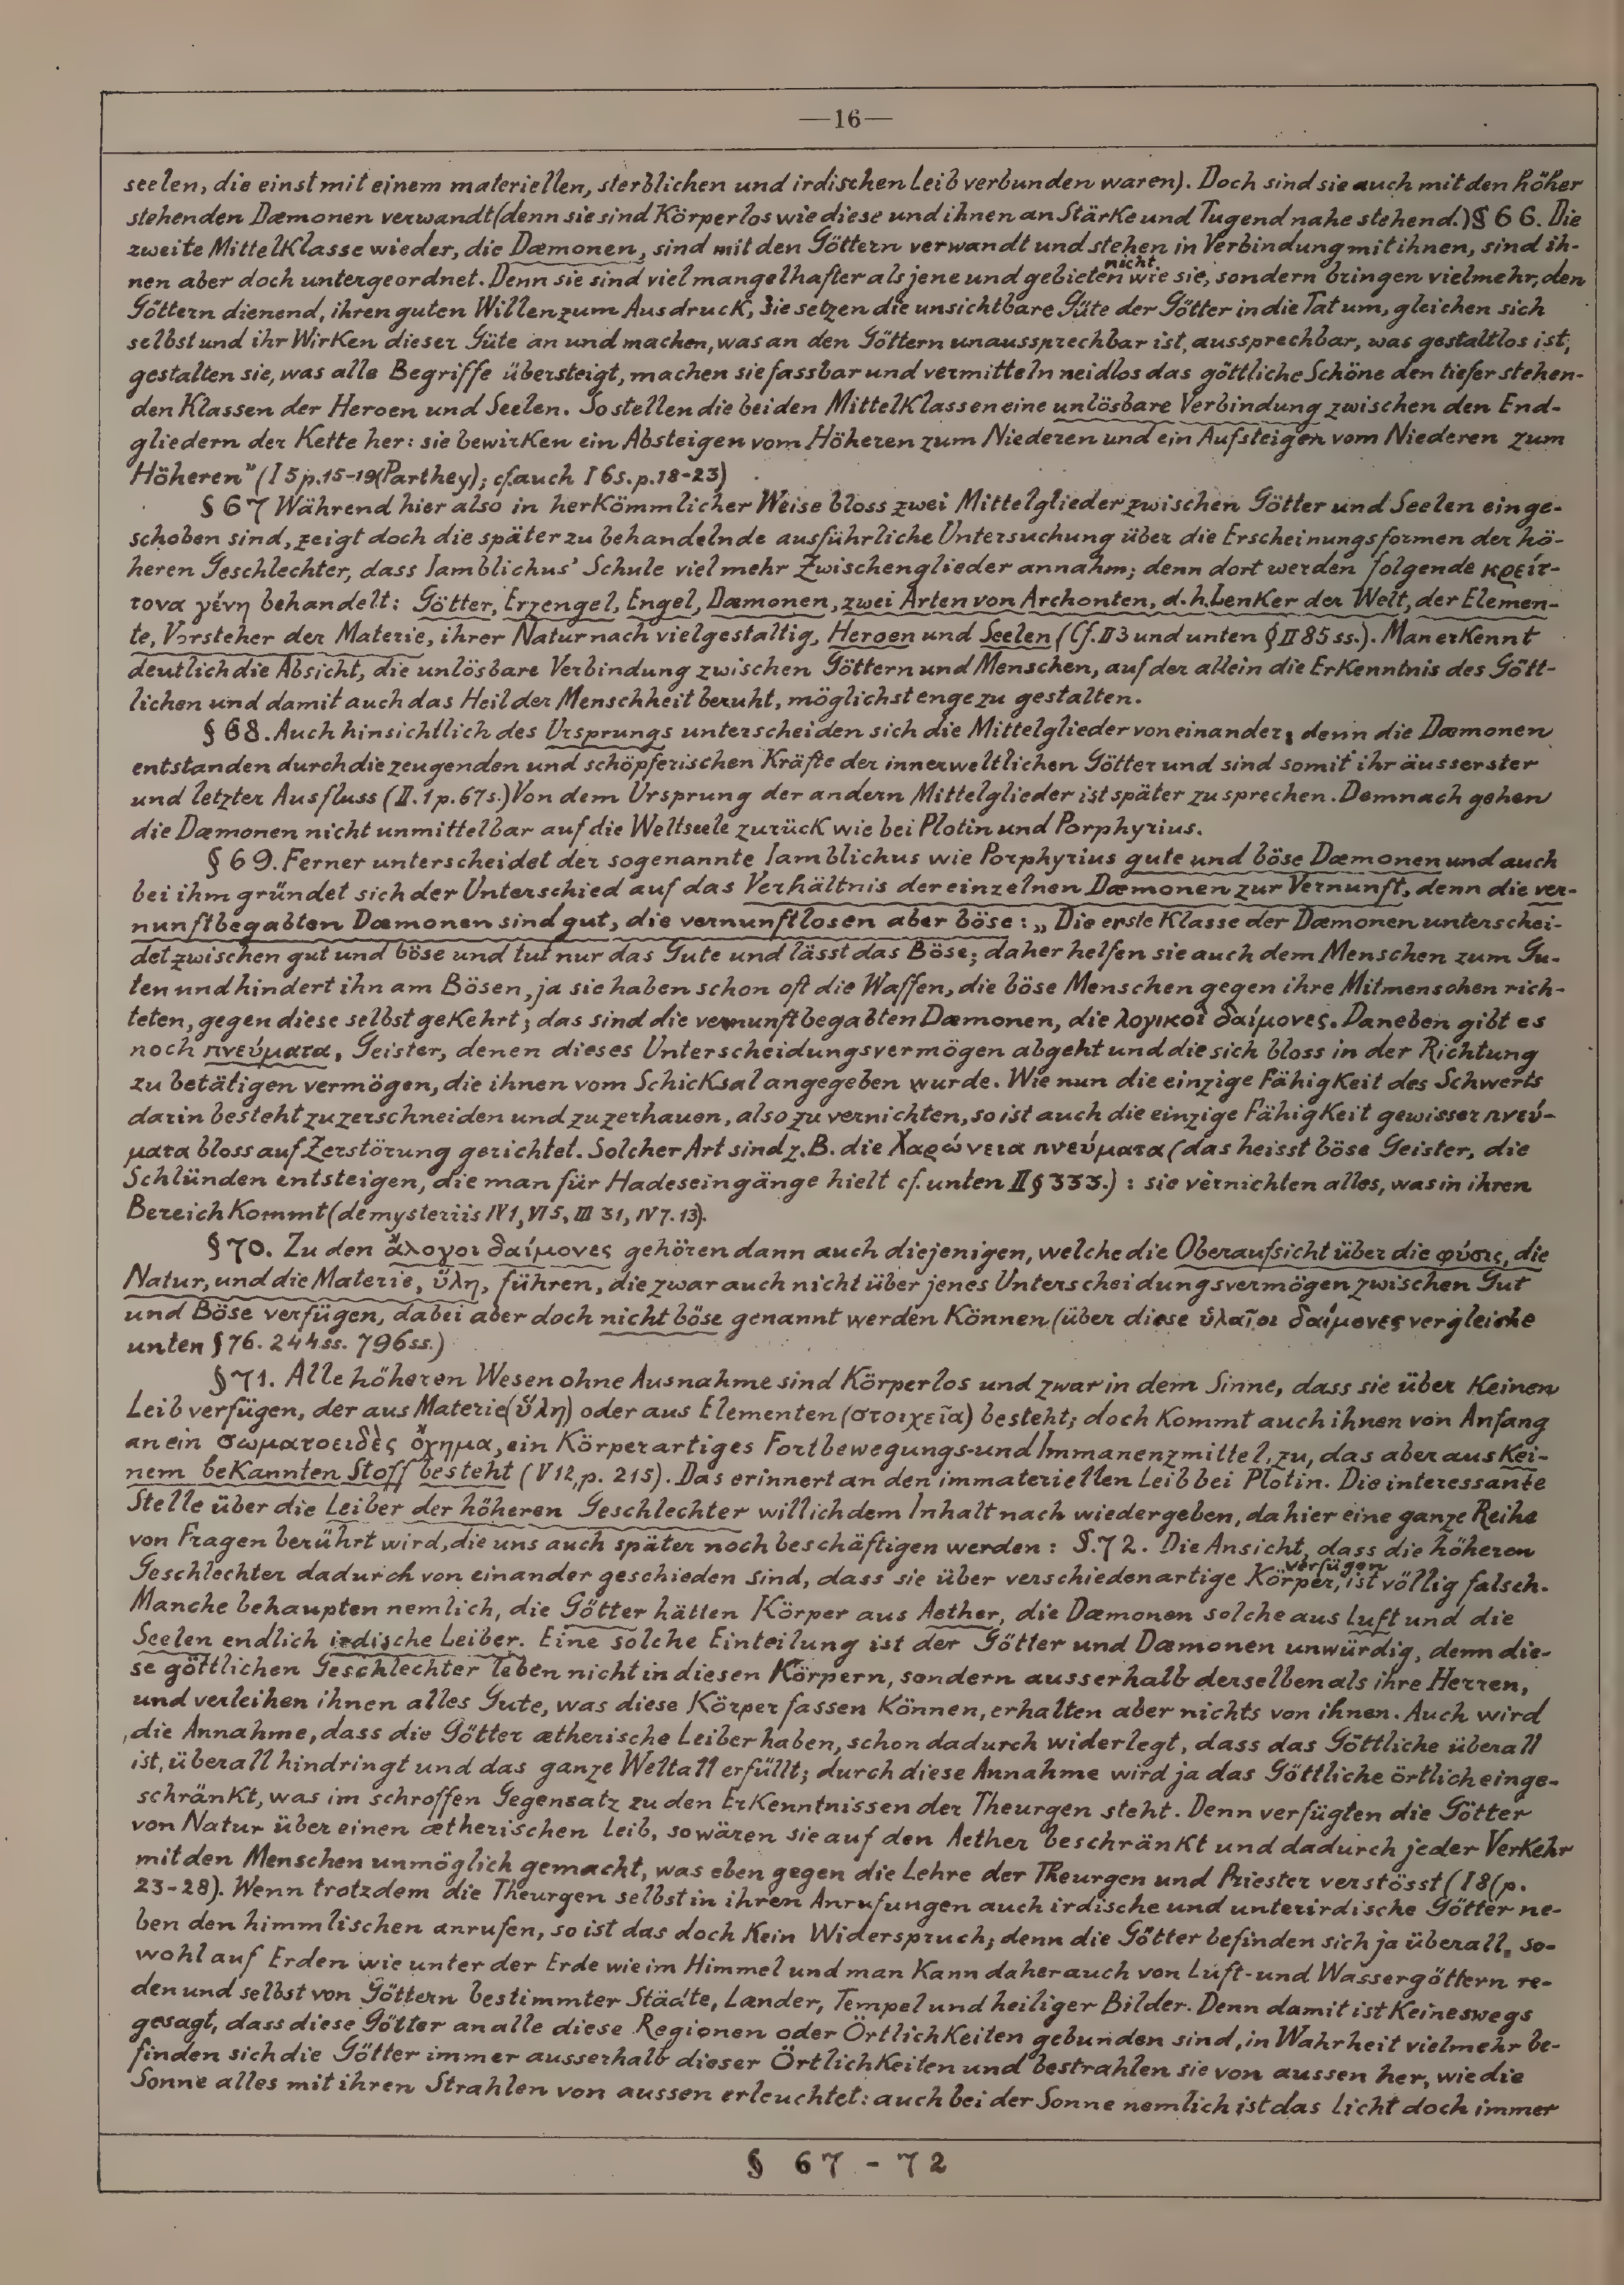 —16—
seelen, die einst mit einem materiellen, sterblichen und irdischen Leib verbunden waren). Doch sind sie auch mit den höher
stehenden Dæmonen verwandt (denn sie sind Körperlos wie diese und ihnen an Stärke und Tugend nahe stehend.) § 66. Die
zweite Mittelklasse wieder, die Dæmonen, sind mit den Göttern verwandt und stehen in Verbindung mit ihnen, sind ih-
nen aber doch untergeordnet. Denn sie sind viel mangelhafter als jene und gebieten nicht wie sie, sondern bringen vielmehr, den
Göttern dienend, ihren guten Willen zum Ausdruck, Sie setzen die unsichtbare Güte der Götter in die Tat um, gleichen sich
selbst und ihr Wirken dieser Güte an und machen, was an den Göttern unaussprechbar ist, aussprechbar, was gestaltlos ist,
gestalten sie, was alle Begriffe übersteigt, machen sie fassbar und vermitteln neidlos das göttliche Schöne den tiefer stehen-
den Klassen der Heroen und Seelen. So stellen die beiden Mittelklassen eine unlösbare Verbindung zwischen den End-
gliedern der Kette her: sie bewirken ein Absteigen vom Höheren zum Niederen und ein Aufsteigen vom Niederen zum
Höheren" (I 5 p. 15-19 (Parthey); cf. auch I 6 s. p. 18-23)
§ 67 Während hier also in herkömmlicher Weise bloss zwei Mittelglieder zwischen Götter und Seelen einge-
schoben sind, zeigt doch die später zu behandelnde ausführliche Untersuchung über die Erscheinungsformen der hö-
heren Geschlechter, dass Iamblichus' Schule viel mehr Zwischenglieder annahm; denn dort werden folgende κρείτ-
τονα γένη behandelt: Götter, Erzengel, Engel, Dæmonen, zwei Arten von Archonten, d. h. Lenker der Welt, der Elemen-
te, Vorsteher der Materie, ihrer Natur nach vielgestaltig, Heroen und Seelen (Cf. II 3 und unten § II 85 ss.). Man erkennt
deutlich die Absicht, die unlösbare Verbindung zwischen Göttern und Menschen, auf der allein die Erkenntnis des Gött-
lichen und damit auch das Heil der Menschheit beruht, möglichst enge zu gestalten.
§ 68. Auch hinsichtlich des Ursprungs unterscheiden sich die Mittelglieder von einander; denn die Dæmonen
entstanden durch die zeugenden und schöpferischen Kräfte der innerweltlichen Götter und sind somit ihr äusserster
und letzter Ausfluss (II. 1 p. 67 s.) Von dem Ursprung der andern Mittelglieder ist später zu sprechen. Demnach gehen
die Dæmonen nicht unmittelbar auf die Weltseele zurück wie bei Plotin und Porphyrius.
§ 69. Ferner unterscheidet der sogenannte Iamblichus wie Porphyrius gute und böse Dæmonen und auch
bei ihm gründet sich der Unterschied auf das Verhältnis der einzelnen Dæmonen zur Vernunft, denn die ver-
nunftbegabten Dæmonen sind gut, die vernunftlosen aber böse: „Die erste Klasse der Dæmonen unterschei-
det zwischen gut und böse und tut nur das Gute und lässt das Böse; daher helfen sie auch dem Menschen zum Gu-
ten und hindert ihn am Bösen, ja sie haben schon oft die Waffen, die böse Menschen gegen ihre Mitmenschen rich-
teten, gegen diese selbst gekehrt; das sind die vernunftbegabten Dæmonen, die λογικοὶ δαίμονες. Daneben gibt es
noch πνεύματα, Geister, denen dieses Unterscheidungsvermögen abgeht und die sich bloss in der Richtung
zu betätigen vermögen, die ihnen vom Schicksal angegeben wurde. Wie nun die einzige Fähigkeit des Schwerts
darin besteht zu zerschneiden und zu zerhauen, also zu vernichten, so ist auch die einzige Fähigkeit gewisser πνεύ-
ματα bloss auf Zerstörung gerichtet. Solcher Art sind z. B. die Χαρώνεια πνεύματα (das heisst böse Geister, die
Schlünden entsteigen, die man für Hadeseingänge hielt cf. unten II § 333.) : sie vernichten alles, was in ihren
Bereich kommt (de mysteriis IV 1, VI 5, III 31, IV 7. 13).
§ 70. Zu den ἄλογοι δαίμονες gehören dann auch diejenigen, welche die Oberaufsicht über die φύσις, die
Natur, und die Materie, ὕλη, führen, die zwar auch nicht über jenes Unterscheidungsvermögen zwischen Gut
und Böse verfügen, dabei aber doch nicht böse genannt werden können (über diese ὑλαῖοι δαίμονες vergleiche
unten § 76. 244 ss. 796 ss.)
§ 71. Alle höheren Wesen ohne Ausnahme sind Körperlos und zwar in dem Sinne, dass sie über keinen
Leib verfügen, der aus Materie (ὕλη) oder aus Elementen (στοιχεῖα) besteht; doch kommt auch ihnen von Anfang
an ein σωματοειδὲς ὄχημα, ein Körperartiges Fortbewegungs- und Immanenzmittel, zu, das aber aus kei-
nem bekannten Stoff besteht (V 12, p. 215). Das erinnert an den immateriellen Leib bei Plotin. Die interessante
Stelle über die Leiber der höheren Geschlechter will ich dem Inhalt nach wiedergeben, da hier eine ganze Reihe
von Fragen berührt wird, die uns auch später noch beschäftigen werden: §. 72. Die Ansicht, dass die höheren
Geschlechter dadurch von einander geschieden sind, dass sie über verschiedenartige Körper verfügen, ist völlig falsch.
Manche behaupten nemlich, die Götter hätten Körper aus Aether, die Dæmonen solche aus Luft und die
Seelen endlich irdische Leiber. Eine solche Einteilung ist der Götter und Dæmonen unwürdig, denn die-
se göttlichen Geschlechter leben nicht in diesen Körpern, sondern ausserhalb derselben als ihre Herren,
und verleihen ihnen alles Gute, was diese Körper fassen können, erhalten aber nichts von ihnen. Auch wird
die Annahme, dass die Götter ætherische Leiber haben, schon dadurch widerlegt, dass das Göttliche überall
ist, überall hindringt und das ganze Weltall erfüllt; durch diese Annahme wird ja das Göttliche örtlich einge-
schränkt, was im schroffen Gegensatz zu den Erkenntnissen der Theurgen steht. Denn verfügten die Götter
von Natur über einen ætherischen Leib, so wären sie auf den Aether beschränkt und dadurch jeder Verkehr
mit den Menschen unmöglich gemacht, was eben gegen die Lehre der Theurgen und Priester verstösst (I 8 (p.
23-28). Wenn trotzdem die Theurgen selbst in ihren Anrufungen auch irdische und unterirdische Götter ne-
ben den himmlischen anrufen, so ist das doch kein Widerspruch; denn die Götter befinden sich ja überall, so-
wohl auf Erden wie unter der Erde wie im Himmel und man kann daher auch von Luft- und Wassergöttern re-
den und selbst von Göttern bestimmter Städte, Lænder, Tempel und heiliger Bilder. Denn damit ist keineswegs
gesagt, dass diese Götter an alle diese Regionen oder Örtlichkeiten gebunden sind, in Wahrheit vielmehr be-
finden sich die Götter immer ausserhalb dieser Örtlichkeiten und bestrahlen sie von aussen her, wie die
Sonne alles mit ihren Strahlen von aussen erleuchtet: auch bei der Sonne nemlich ist das Licht doch immer
§ 67 - 72